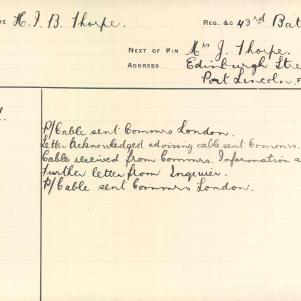 ME H. J. B. Thorpe. REG. &C 43rd Bat
NEXT OF KIN Mrs J. Thorpe.
ADDRESS Edinburgh Stre
Port Lincoln,
P/Cable sent Commrs London.
Letter Acknowledged advising cable sent Commrs.
Cable received from Commrs. Information s
Further letter from Inquirer.
P/Cable sent Commrs London.